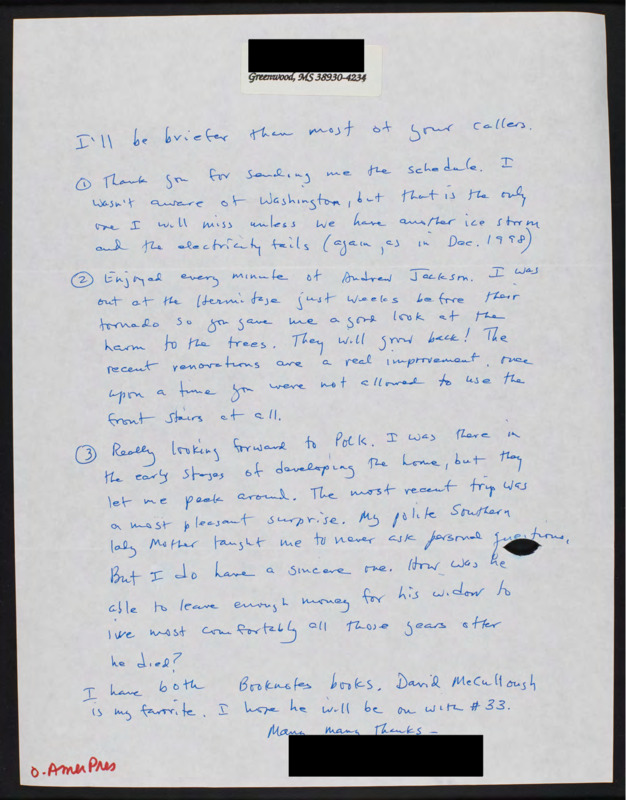 Greenwood, MS 38930-4234
I'll be briefer than most of your callers.
① Thank you for sending me the schedule. I
wasn't aware of Washington, but that is the only
one I will miss unless we have another ice storm
and the electricity fails (again, as in Dec. 1998)
② Enjoyed every minute of Andrew Jackson. I was
out at the Hermitage just weeks before their
tornado so you gave me a good look at the
harm to the trees. They will grow back! The
recent renovations are a real improvement. once
upon a time you were not allowed to use the
front stairs at all.
③ Really looking forward to Polk. I was there in
the early stages of developing the home, but they
let me peek around. The most recent trip was
a most pleasant surprise. My polite Southern
lady Mother taught me to never ask personal questions.
But I do have a sincere one. How was he
able to leave enough money for his widow to
live most comfortably all those years after
he died?
I have both Booknotes books. David McCullough
is my favorite. I hope he will be on with #33.
Many many Thanks —
O. AmerPres